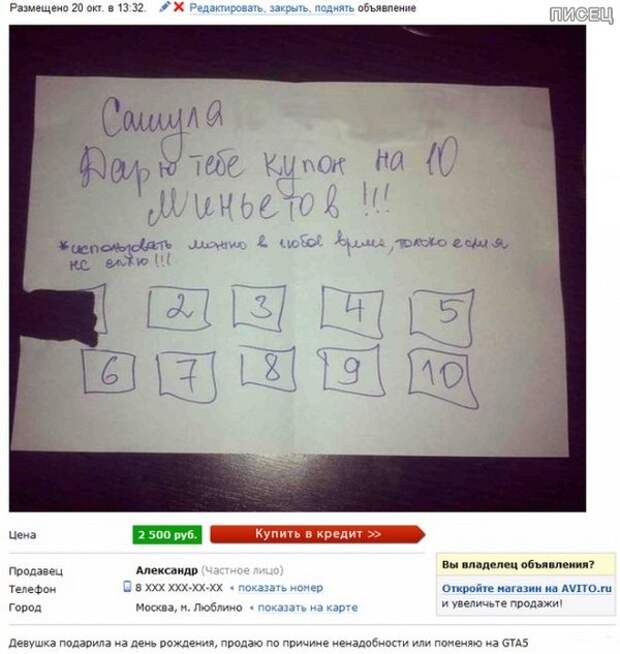 Размещено 20 окт. в 13:32. Редактировать, закрыть, поднять объявление
ПИСЕЦ
Сашуля
Дарю тебе купон на 10
Миньетов!!!
*использовать можно в любое время, только если я
не сплю!!!
2 3 4 5
6 7 8 9 10
Цена 2 500 руб. Купить в кредит >>
Продавец Александр (Частное лицо)
Телефон 8 XXX XXX-XX-XX показать номер
Город Москва, м. Люблино показать на карте
Вы владелец объявления?
Откройте магазин на AVITO.ru
и увеличьте продажи!
Девушка подарила на день рождения, продаю по причине ненадобности или поменяю на GTA5